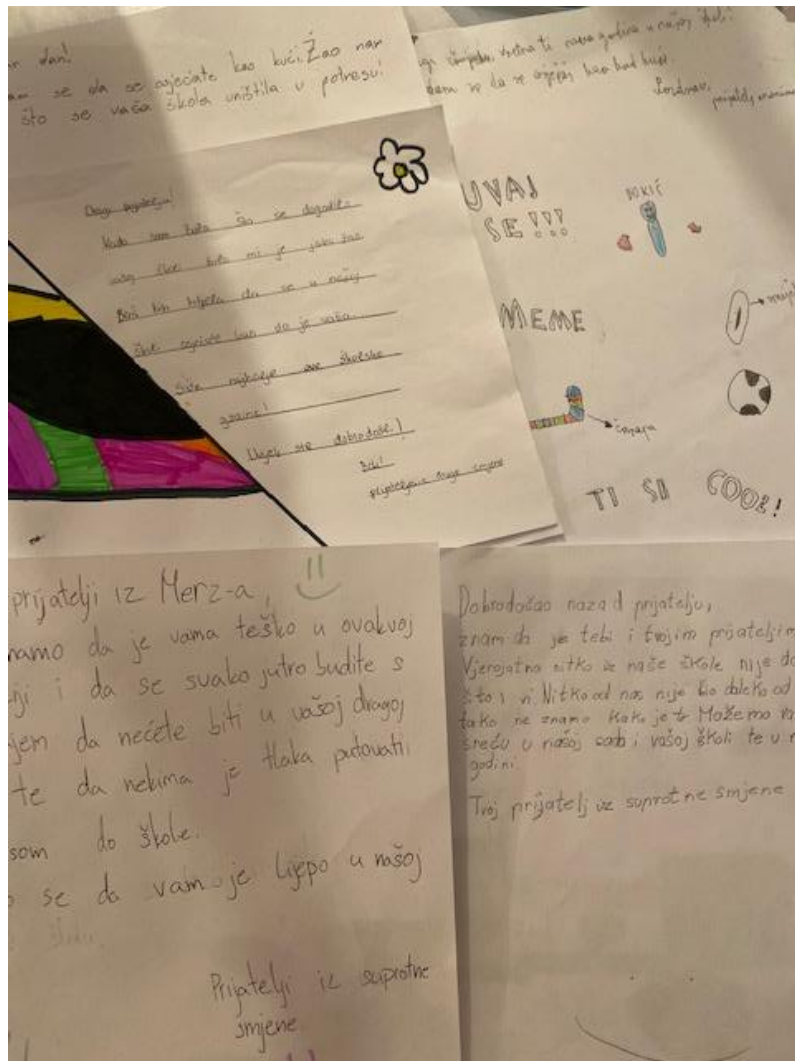 dan!
se da se osjećate kao kući. Žao nam
što se vaša škola uništila u potresu!
ti nova godina u našoj školi!
se da se osjećaš kao kod kuće.
Pozdrav,
prijatelj
Dragi prijatelju!
Kada sam čula što se dogodilo
vašoj školi bilo mi je jako žao
da se u našoj
školi osjećate kao da je vaša.
Želim najbolje ove školske
godine!
Uvijek ste dobrodošli!
Bok!
prijateljica druge smjene
UVAJ
SE!!!
ĐOKIĆ
MEME
TI SI COOL!
prijatelji iz Merz-a,
namo da je vama teško u ovakvoj
ji i da se svako jutro budite s
jem da nećete biti u vašoj dragoj
te da nekima je tlaka putovati
som do škole.
se da vam je lijepo u našoj
Prijatelji iz suprotne
smjene.
Dobrodošao nazad prijatelju,
znam da je tebi i tvojim prijateljim
Vjerojatno nitko iz naše škole nije do
što i vi. Nitko od nas nije bio daleko od
tako ne znamo kako je to Možemo va
sreću u našoj sada i vašoj školi te u n
godini.
Tvoj prijatelj iz suprotne smjene